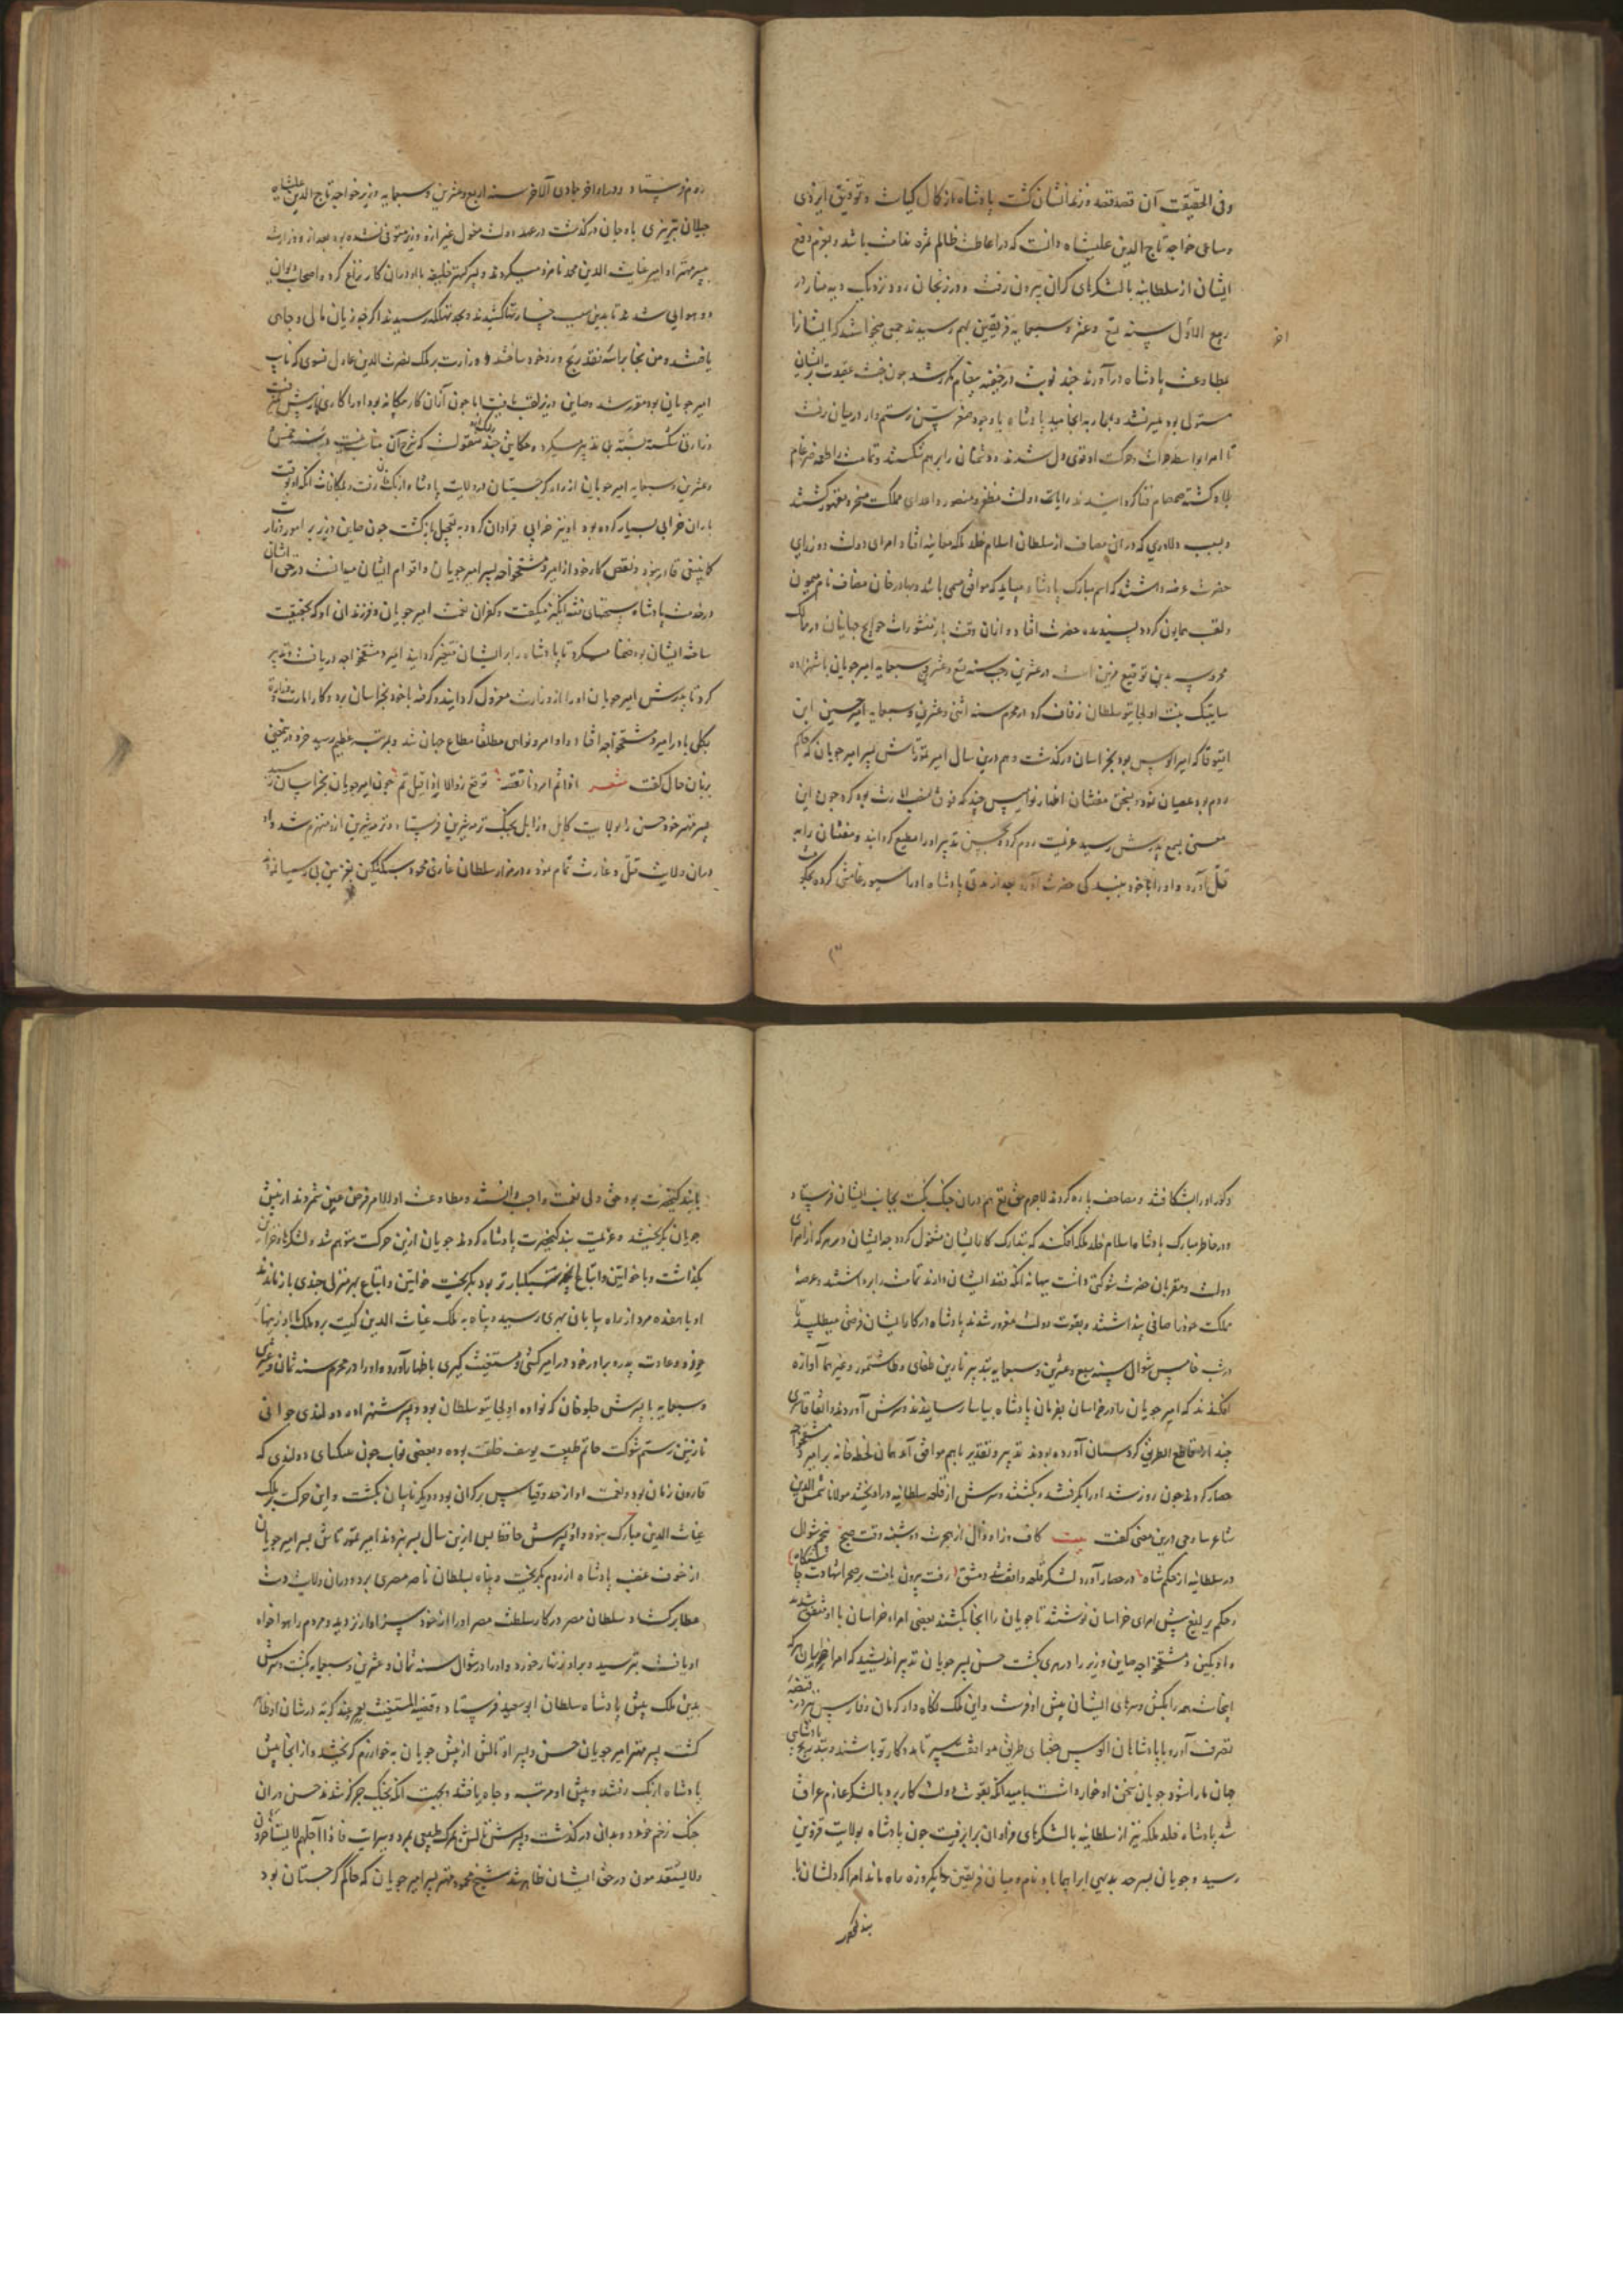 وفی الحقیقت آن قصد قصد فرزندانشان کشت پادشاه از کمال کیاست و توفیق ایزدی
و ساعی خواجه تاج الدین علیشاه دانست که در اعاطت ظالم ثمره ندامت باشد و بعزم دفع
ایشان از سلطانیه با لشکرهای کران بیرون رفت و در زنجان رود نزدیک دیه منار در
ربیع الاول سنه تسع و عشر و سبعمایه فریقین بهم رسیدند جمعی میخواستند که ایشانرا
بمطاوعت پادشاه درآورند چند نوبت پیغام مکرر شد چون خبث عقیدت بر ایشان
مستولی بود میسر نشد و بمحاربه انجامید پادشاه با وجود صغر سن رستم وار در میان رفت
تا امرا بواسطه حرکت او قوی دل شدند و دشمنان را برهم شکستند و تمامت را طعمه ضرغام
بلا و کشته صمصام فنا کردانیدند رایات دولت مظفر و منصور و اعدای مملکت مسخر و مقهور کشتند
و بسبب دلاوری که در آن مصاف از سلطان اسلام خلد ملکه معاینه افتاد امرای دولت و وزرای
حضرت عرضه داشتند که اسم مبارک پادشاه میباید که موافق مسمی باشد و بهادر خان مضاف نام میمون
و لقب همایون کردد پسندیده حضرت افتاد و از آن وقت باز منشورات حوایج جهانیان در ممالک
محروسه بدین توقیع مزین است در عشرین رجب سنه تسع و عشر و سبعمایه امیر چوپان با شهزاده
ساتی بیک بنت اولجایتو سلطان زفاف کرد در محرم سنه اثنی و عشرین و سبعمایه امیر حسین ابن
آقبوقا که امیر الوس بود بخراسان درکذشت و هم درین سال امیر تمورتاش پسر امیر چوپان که حاکم
روم بود عصیان نمود و بسخن مفتنان اظهار نوامیس چند که فوق منصب امارت بود کرد چون این
معنی بسمع پدرش رسید عزیمت روم کرد و بحسن تدبیر او را مطیع کردانید و مفتنان را به
قتل آورد و او را با خود ببندکی حضرت آورد بعد از مدتی پادشاه او را سیورغامشی کرده بحکومت
روم فرستاد و در اواخر جمادی الاخر سنه اربع و عشرین و سبعمایه وزیر خواجه تاج الدین علیشاه
جیلان تبریزی باوجان درکذشت در عهد دولت مغول غیر ازو وزیر متوفی نشده بود بعد ازو وزارت
بپسر مهتر او امیر غیاث الدین محمد نامزد میکردند و پسر کهتر خلیفه با او در آن کار نزاع کرد و اصحاب دیوان
دو هوایی شدند تا بدین سبب خسارتها کشیدند و بحد تهلکه رسیدند اکر خود زیان مالی و جاهی
یافتند و من نجا براسه فقد ربح ورد خود ساختند و وزارت بر ملک نصرت الدین عادل نسوی که نایب
امیر چوپان بود مقرر شد و صاین وزیر لقب یافت اما چون آنان کار مکانه بود او را کاری پیش نمیرفت
وزارتی شکسته بسته بی تدبیر میکرد و حکایتی چند منقولست که شرح آن مناسب نیست در سنه خمس
و عشرین و سبعمایه امیر چوپان از راه کرجستان در ولایت پادشاه ازبک خان رفت و بمکافات آنکه او نوبت
باران خرابی بسیار کرده بود او نیز خرابی فراوان کرد و به تعجیل بازکشت چون صاین وزیر بر امور وزارت
کما ینبغی قادر نبود و نقص کار خود از امیر دمشق خواجه پسر امیر چوپان و اقوام ایشان میدانست در حق ایشان
در خدمت پادشاه سخنهای فتنه انکیز میکفت و کفران نعمت امیر چوپان و فرزندان او که بحقیقت
ساخته ایشان بود ضما میکرد تا پادشاه را بر ایشان متغیر کردانید امیر دمشق خواجه دریافت و تدبیر
کرد تا پدرش امیر چوپان او را از وزارت معزول کردانید و کرفته با خود بخراسان برد و کار امارت و وزارت
بکلی با امیر دمشق خواجه افتاد و اوامر و نواهی مطلقا مطاع جهان شد و بمرتبه عظیم رسید خرد در تحقیق
بزبان حال کفت شعر اذا تم امر دنا نقصه توقع زوالا اذا قیل تم چون امیر چوپان بخراسان رسید
پسر مهتر خود حسن را بولایت کابل و زابل بجنک ترمه شیرین فرستاد و ترمه شیرین ازو منهزم شد و او
در آن ولایت قتل و غارت تمام نمود و در مزار سلطان غازی محمود سبکتکین بغزنین بی رسمیها نمود
و کور او را شکافتند و مصاحف پاره کردند لاجرم حق تعالی هم در آن جنک نکبت بجانب ایشان فرستاد
و در خاطر مبارک پادشاه اسلام خلد ملکه افکند که بتدارک کار ایشان مشغول کردد چه ایشان در هر که از امرای
دولت و مقربان حضرت شوکتی داشت ببهانه آنکه قصد ایشان دارند تمامت را برداشتند و عرصه
مملکت خود را صافی پنداشتند و بقوت دولت مغرور شدند پادشاه در کار ایشان فرصتی میطلبید تا
در شب خامس شوال سنه سبع و عشرین و سبعمایه بتدبیر نارین طغای و طاشتمور و غیرهما آوازه
افکندند که امیر چوپان را در خراسان بفرمان پادشاه بیاسا رسانیدند و سرش آوردند و اتفاقا سری
چند از قطاع الطریق کردستان آورده بودند تدبیر و تقدیر باهم موافق آمد همان لحظه خانه بر امیر دمشق خواجه
حصار کردند چون روز شد او را بکرفتند و بکشتند و سرش از قلعه سلطانیه درآویختند مولانا شمس الدین
شاعر ساوجی درین معنی کفت بیت کاف و زا و ذال از هجرت دوشنبه وقت صبح پنجم شوال
در سلطانیه از حکم شاه در حصار آورد لشکر قلعه و انفت دمشق رفت بیرون یافت بر صحرا شهادت جایگاه
و حکم یرلیغ پیش امرای خراسان نوشتند تا چوپان را آنجا بکشند بعضی امراء خراسان با او متفق شدند
و او بکین دمشق خواجه صاین وزیر را در هری بکشت حسن پسر چوپان تدبیر اندیشید که امرا خراسان هرکه
اینجاست همه را بکش و سرهای ایشان پیش او فرست و این ملک نکاه دار کرمان و فارس نیز در قبضه
تصرف آورد با پادشاهان الوس جغتای طریق موافقت سپر تا مددکار تو باشند و بتدریج پادشاهی
جهان ما را شود چوپان سخن او خوار داشت بامید آنکه بقوت دولت کار برد با لشکر عازم عراق
شد پادشاه خلد ملکه نیز از سلطانیه با لشکرهای فراوان برابر رفت چون پادشاه بولایت قزوین
رسید و چوپان بسرحد بدیهی ابراهیماباد نام و میان فریقین یکروزه راه ماند امرا که دلشان با
بندکی حضرت
بابندکیحضرت بود حق ولی نعمت واجب دانستند و مطاوعت اولالامر فرض عین شمردند از پیش
چوپان بکریختند و عزیمت بندکیحضرت پادشاه کردند چوپان ازین حرکت متوهم شد و لشکر و خزاین
بکذاشت و با خواتین و اتباع آنچه سبکبارتر بود بکریخت خواتین و اتباع بهر منزل چندی باز ماندند
او با هفده مرد از راه بیابان بهری رسید و پناه به ملک غیاث الدین کرت برد ملک او را زینهار
خود و عادت پدر و برادر خود در امیر کشی و مستغیث کیری باظهار آورد و او را در محرم سنه ثمان و عشرین
و سبعمایه با پسرش جلوخان که نواده اولجایتو سلطان بود و پسر شهزاده دولندی جوانی
نازنین رستم شوکت حاتم طبیعت یوسف خلقت بوده و بعضی نجاب چون عسکهای دولندی که
قارون زمان بود و نعمت او از حد و قیاس بر کران بود و دیکر نایبان بکشت و این حرکت بر ملک
غیاث الدین مبارک نبود و او و پسرش حافظ بس ازین سال بسر نبردند امیر تمورتاش پسر امیر چوپان
از خوف غضب پادشاه از روم بکریخت و پناه بسلطان ناصر مصری برد و در آن ولایت دست
عطا برکشاد سلطان مصر در کار سلطنت مصر او را از خود سزاوارتر دید و مردم را هواخواه
او یافت بترسید و برو زنهار خورد و او را در شوال سنه ثمان و عشرین و سبعمایه بکشت و سرش
بدین ملک پیش پادشاه سلطان ابوسعید فرستاد و قضیه المستغیث بعمرو عند کربته در شان او ظاهر
کشت پسر مهتر امیر چوپان حسن و پسر او تالش از پیش چوپان به خوارزم کریختند و از آنجا پیش
پادشاه ازبک رفتند و پیش او مرتبه و جاه یافتند بجهت آنکه بجنک چرکز شدند حسن در آن
جنک زخم خورد و بدان درکذشت و پسرش تالش بمرک طبیعی بمرد و سر آیت فاذا جاء اجلهم لا یستاخرون
ولا یستقدمون در حق ایشان ظاهر شد شیخ محمود مهتر پسر امیر چوپان که حاکم کرجستان بود